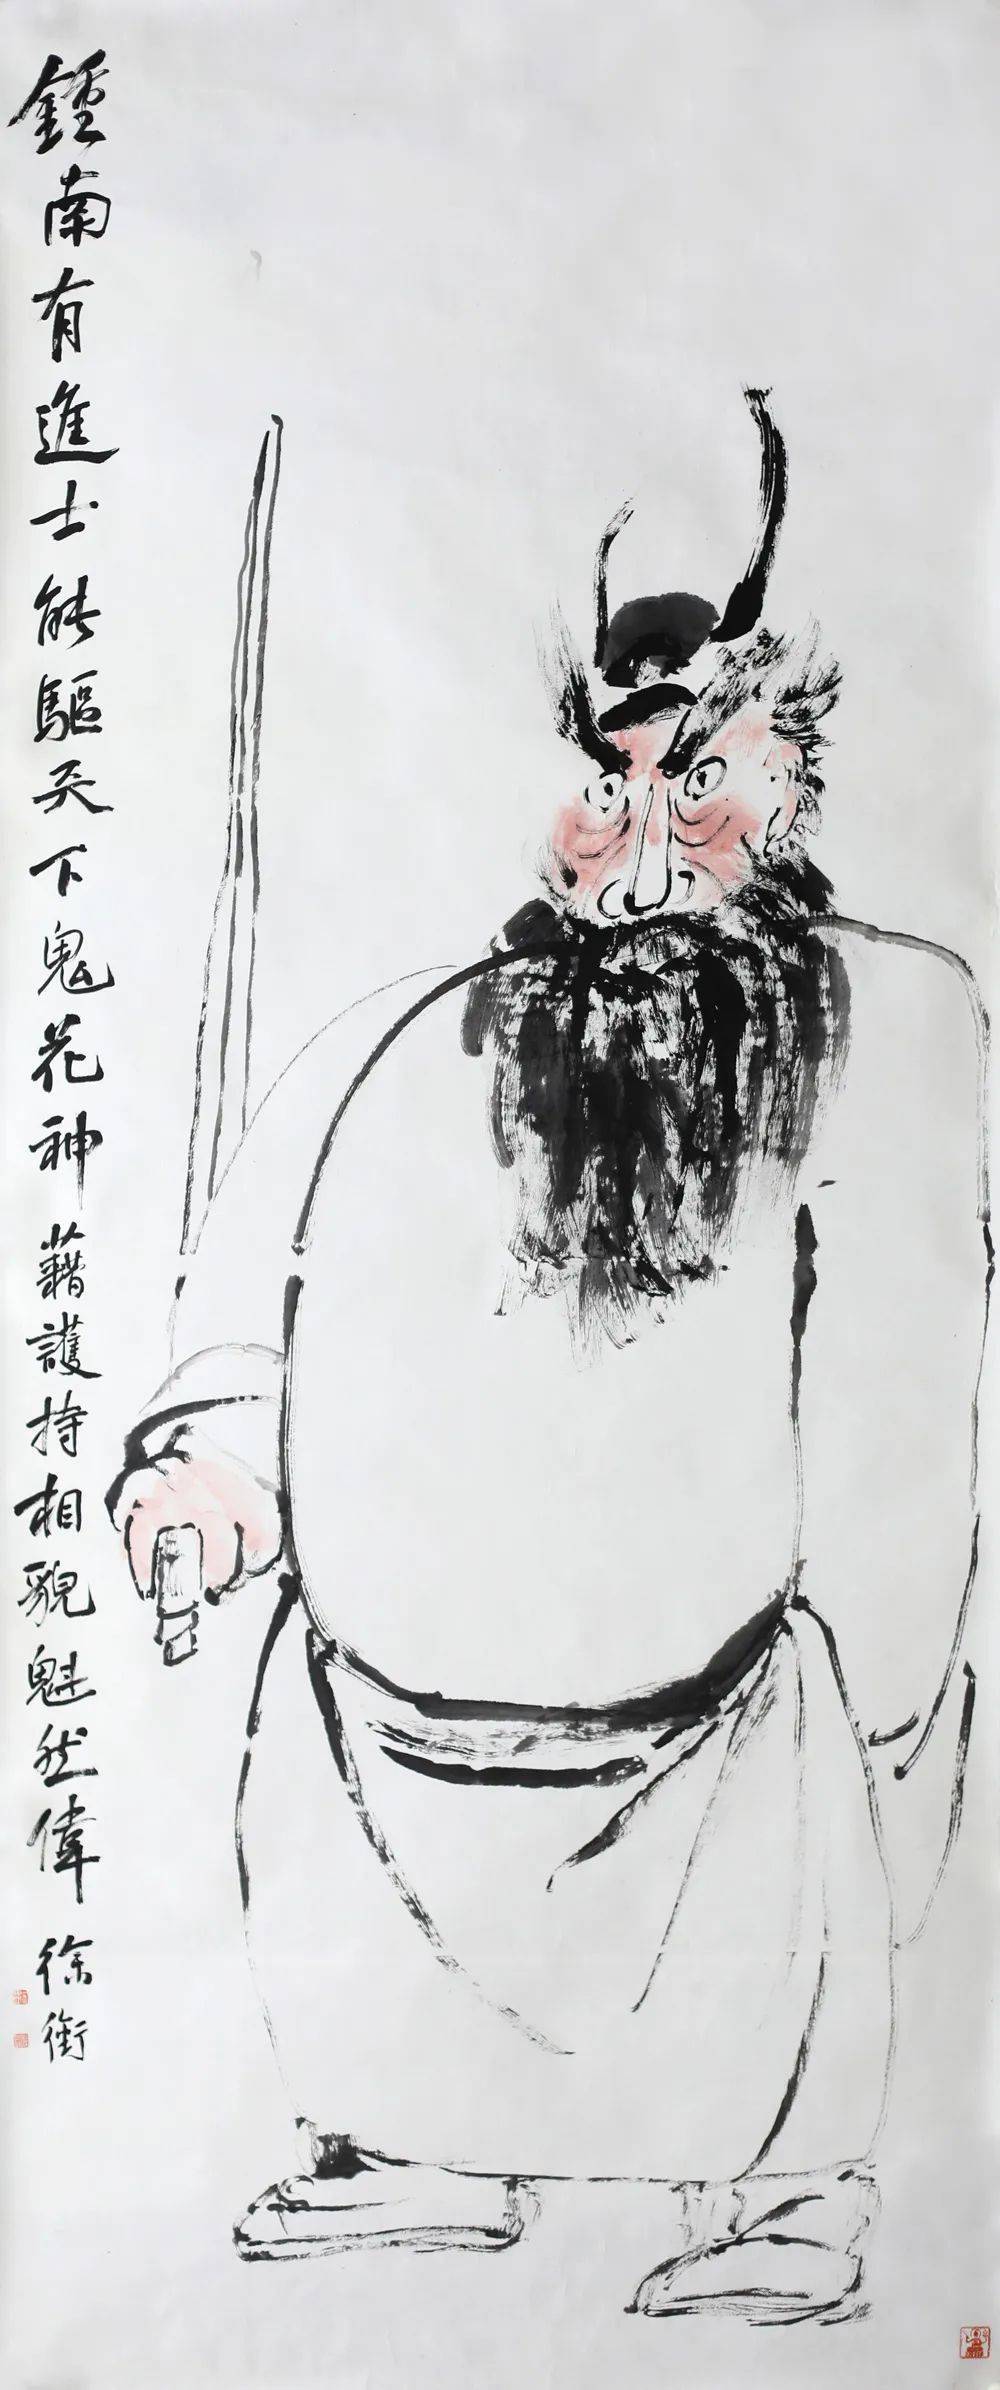 鍾南有進士能驅天下鬼花神藉護持相貌魁然偉
徐衡